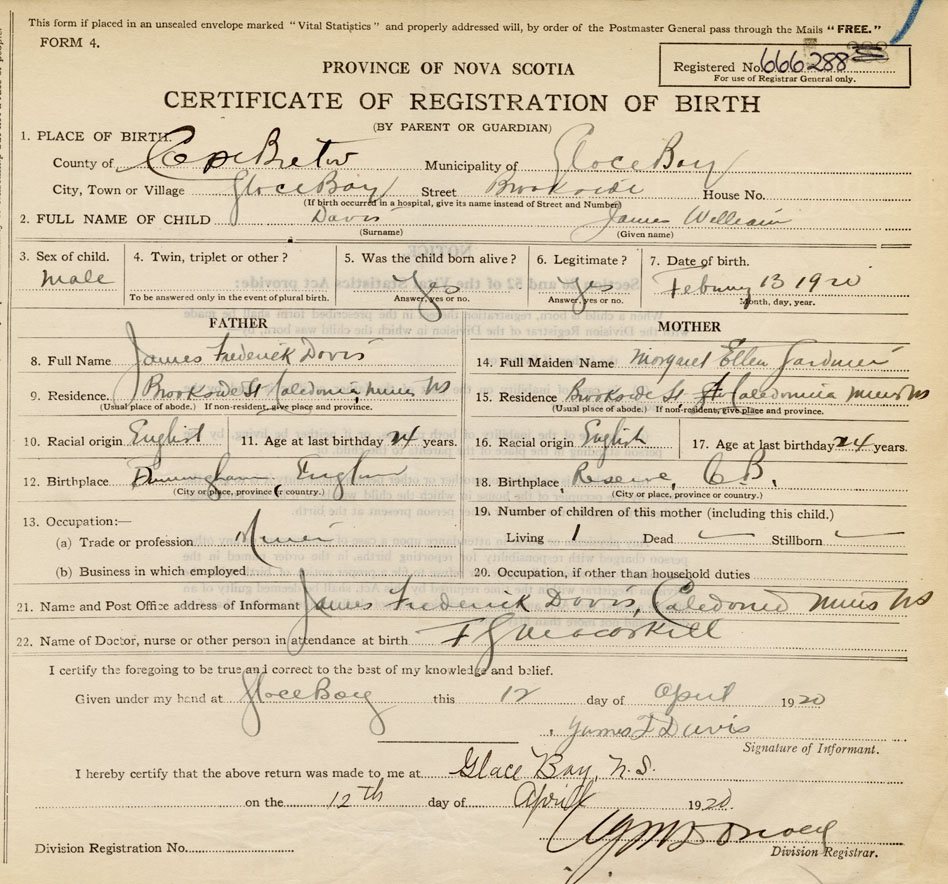 This form if placed in an unsealed envelope marked "Vital Statistics" and properly addressed will, by order of the Postmaster General pass through the Mails "FREE."
FORM 4.
Registered No. 666288
For use of Registrar General only.
PROVINCE OF NOVA SCOTIA
CERTIFICATE OF REGISTRATION OF BIRTH
(BY PARENT OR GUARDIAN)
1. PLACE OF BIRTH.
County of Cape Breton Municipality of Glace Bay
City, Town or Village Glace Bay Street Brookside House No.
(If birth occurred in a hospital, give its name instead of Street and Number)
2. FULL NAME OF CHILD Davis James William
(Surname) (Given name)
3. Sex of child. 4. Twin, triplet or other? 5. Was the child born alive? 6. Legitimate? 7. Date of birth.
Male Yes Yes February 13 1920
To be answered only in the event of plural birth. Answer, yes or no. Answer, yes or no. Month, day, year.
FATHER MOTHER
8. Full Name James Frederick Davis 14. Full Maiden Name Margaret Ellen Gardner
9. Residence. Brookside St Caledonia Mines NS 15. Residence Brookside St Caledonia Mines NS
(Usual place of abode.) If non-resident, give place and province. (Usual place of abode.) If non-resident, give place and province.
10. Racial origin English 11. Age at last birthday 24 years. 16. Racial origin English 17. Age at last birthday 24 years.
12. Birthplace Birmingham, England 18. Birthplace Reserve, C.B.
(City or place, province or country.) (City or place, province or country.)
13. Occupation:— 19. Number of children of this mother (including this child.)
(a) Trade or profession Miner Living 1 Dead Stillborn
(b) Business in which employed 20. Occupation, if other than household duties
21. Name and Post Office address of Informant James Frederick Davis, Caledonia Mines NS
22. Name of Doctor, nurse or other person in attendance at birth
I certify the foregoing to be true and correct to the best of my knowledge and belief.
Given under my hand at Glace Bay this 12 day of April 1920
James F Davis
Signature of Informant.
I hereby certify that the above return was made to me at Glace Bay, N.S.
on the 12th day of April 1920.
Division Registration No. Division Registrar.